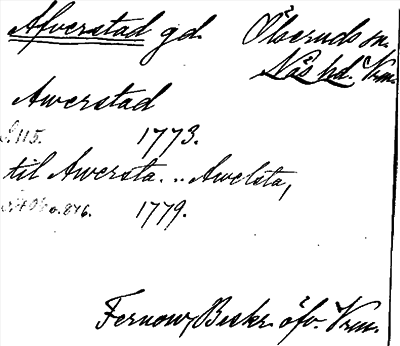 Afverstad gd. Ölseruds sn.
Näs hd. Vrm.
Awerstad
S. 115. 1773.
til Awersta... Awelsta,
1779.
Fernow, Beskr. öfv. Vrm.